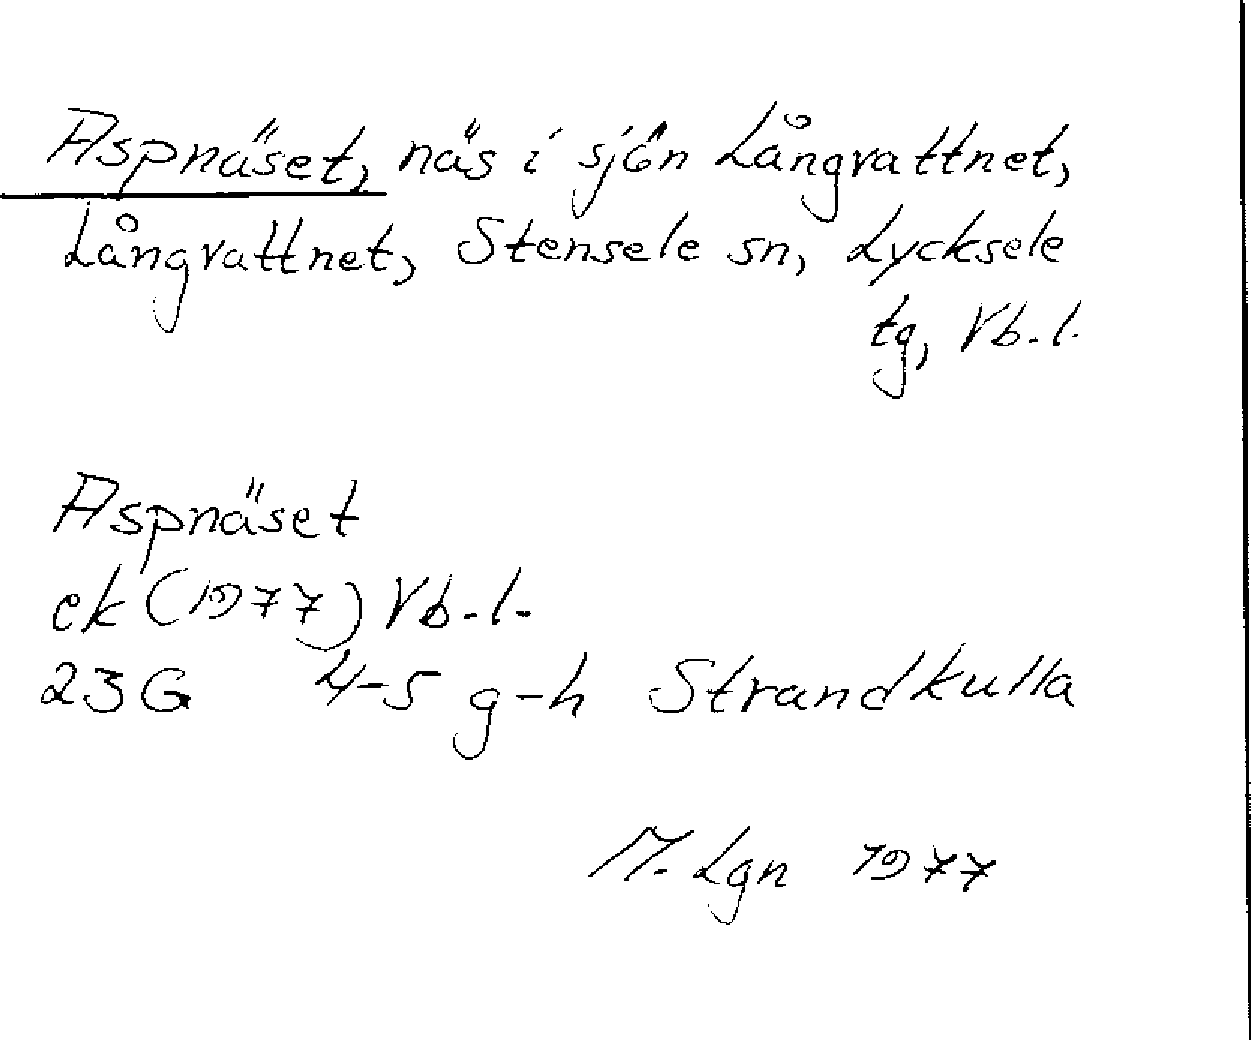 Aspnäset, näs i sjön Långvattnet,
Långvattnet, Stensele sn, Lycksele
tg, Vb.l.
Aspnäset
ek (1977) Vb.l.
23G 4-5 g-h Strandkulla
M. Lgn 1977